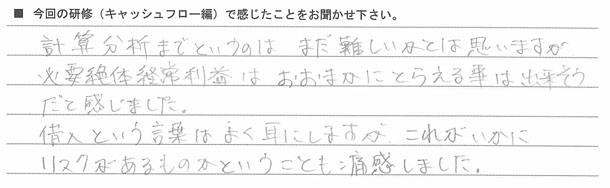 ■ 今回の研修（キャッシュフロー編）で感じたことをお聞かせ下さい。
計算分析までというのは まだ難しいかとは思いますが
必要絶体経常利益は おおまかにとらえる事は出来そう
だと感じました。
借入という言葉はよく耳にしますが、これがいかに
リスクがあるものかということも痛感しました。